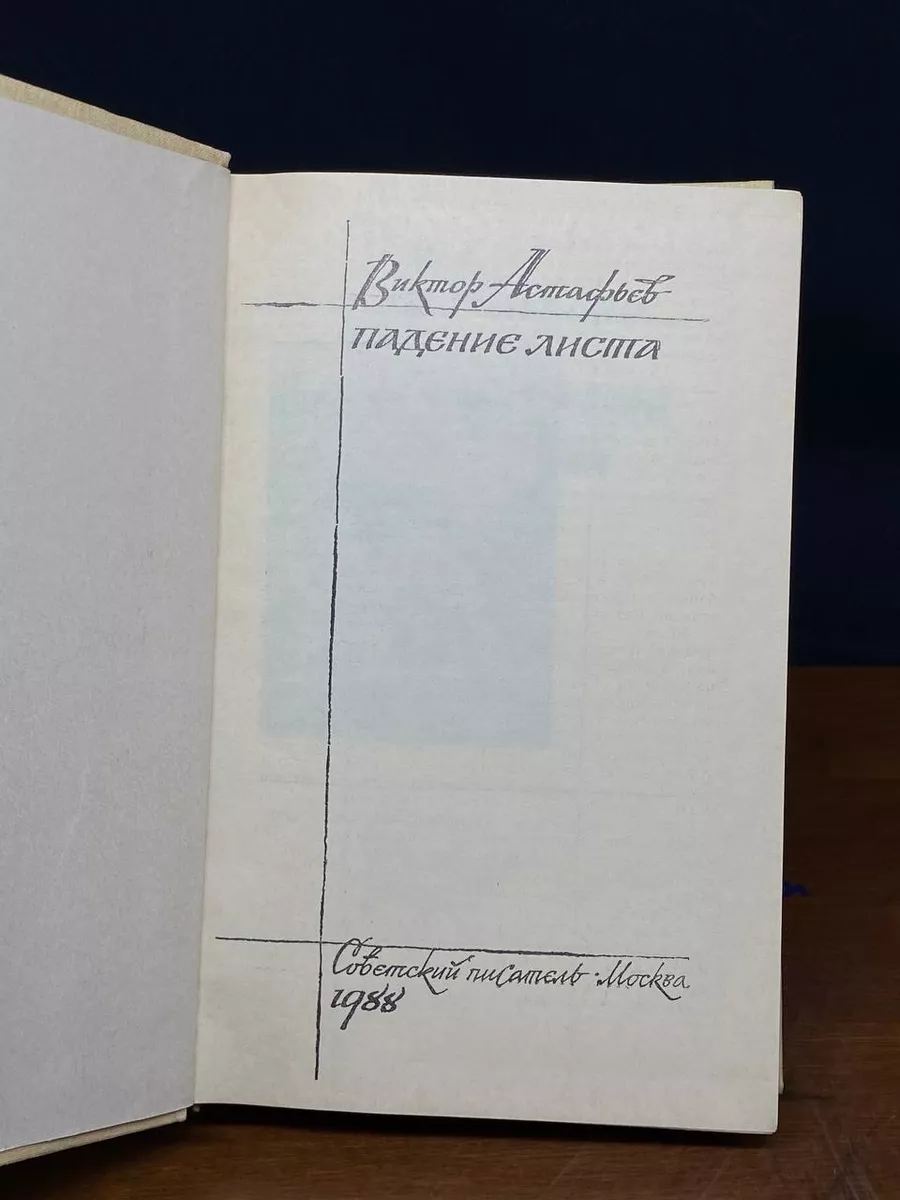 Виктор Астафьев
ПАДЕНИЕ ЛИСТА
Советский писатель · Москва
1988